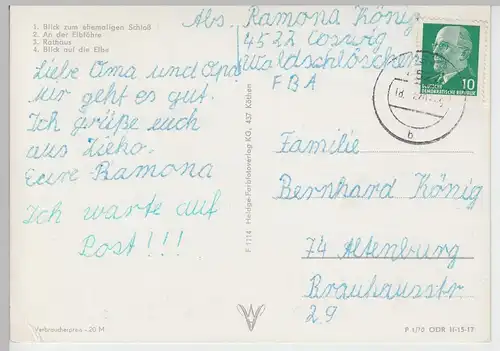 1. Blick zum ehemaligen Schloß
2. An der Elbfähre
3. Rathaus
4. Blick auf die Elbe
Abs. Ramona König
4522 Coswig
Waldschlösschen
FBA
Liebe Oma und Opa
mir geht es gut.
Ich grüße euch
aus
Eure Ramona
Ich warte auf
Post!!!
F 1114 Heldge-Farbfotoverlag KG, 437 Köthen
10
DEUTSCHE
DEMOKRATISCHE REPUBLIK
b
Familie
Bernhard König
74 Altenburg
Brauhausstr
29
Verbraucherpreis -,20 M
P 1/70 DDR II-15-17